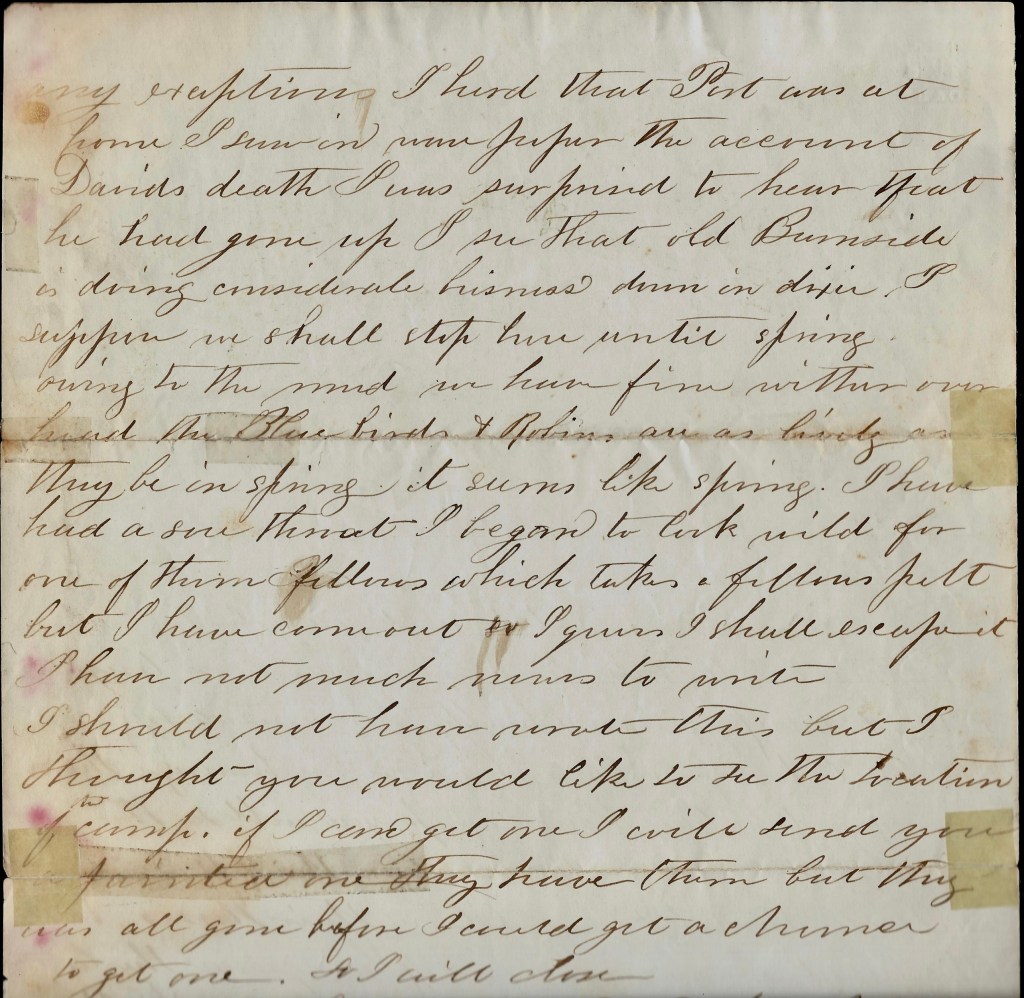 any exceptions I herd that Port was at
home I saw in now paper the account of
Davids death I was surprised to hear that
he had gone up I see that old Burnside
is doing considerale bisness down in dixie. I
suppose we shall stop here until spring.
owing to the mud we have fine wither over
head the Blue birds & Robins are as lively as
they be in spring. it seems like spring. I have
had a sore throat I began to look wild for
one of them fellows which takes a fellows pelt
but I have come out so I guess I shall escape it
I have not much news to write
I should not have wrote this but I
thought you would like to see the location
of the camp. if I can get one I will send you
a painted one they have them but they
was all gone before I could get a chance
to get one. So I will close